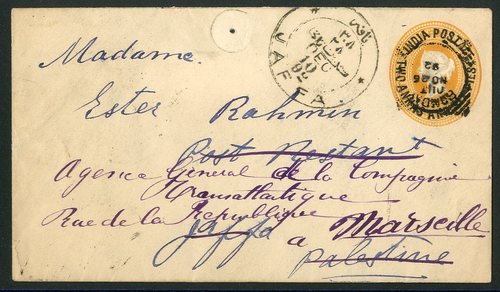 Madame.
Ester Rahmin
Post Restant
Agence General de la Compagnie
Transatlantique
Rue de la Republique
Jaffa
a Marseille
Palestine
JAFFA
DEC
10
92
INDIA POSTAGE
TWO ANNAS
BOMBAY
OUT
NO 26
92